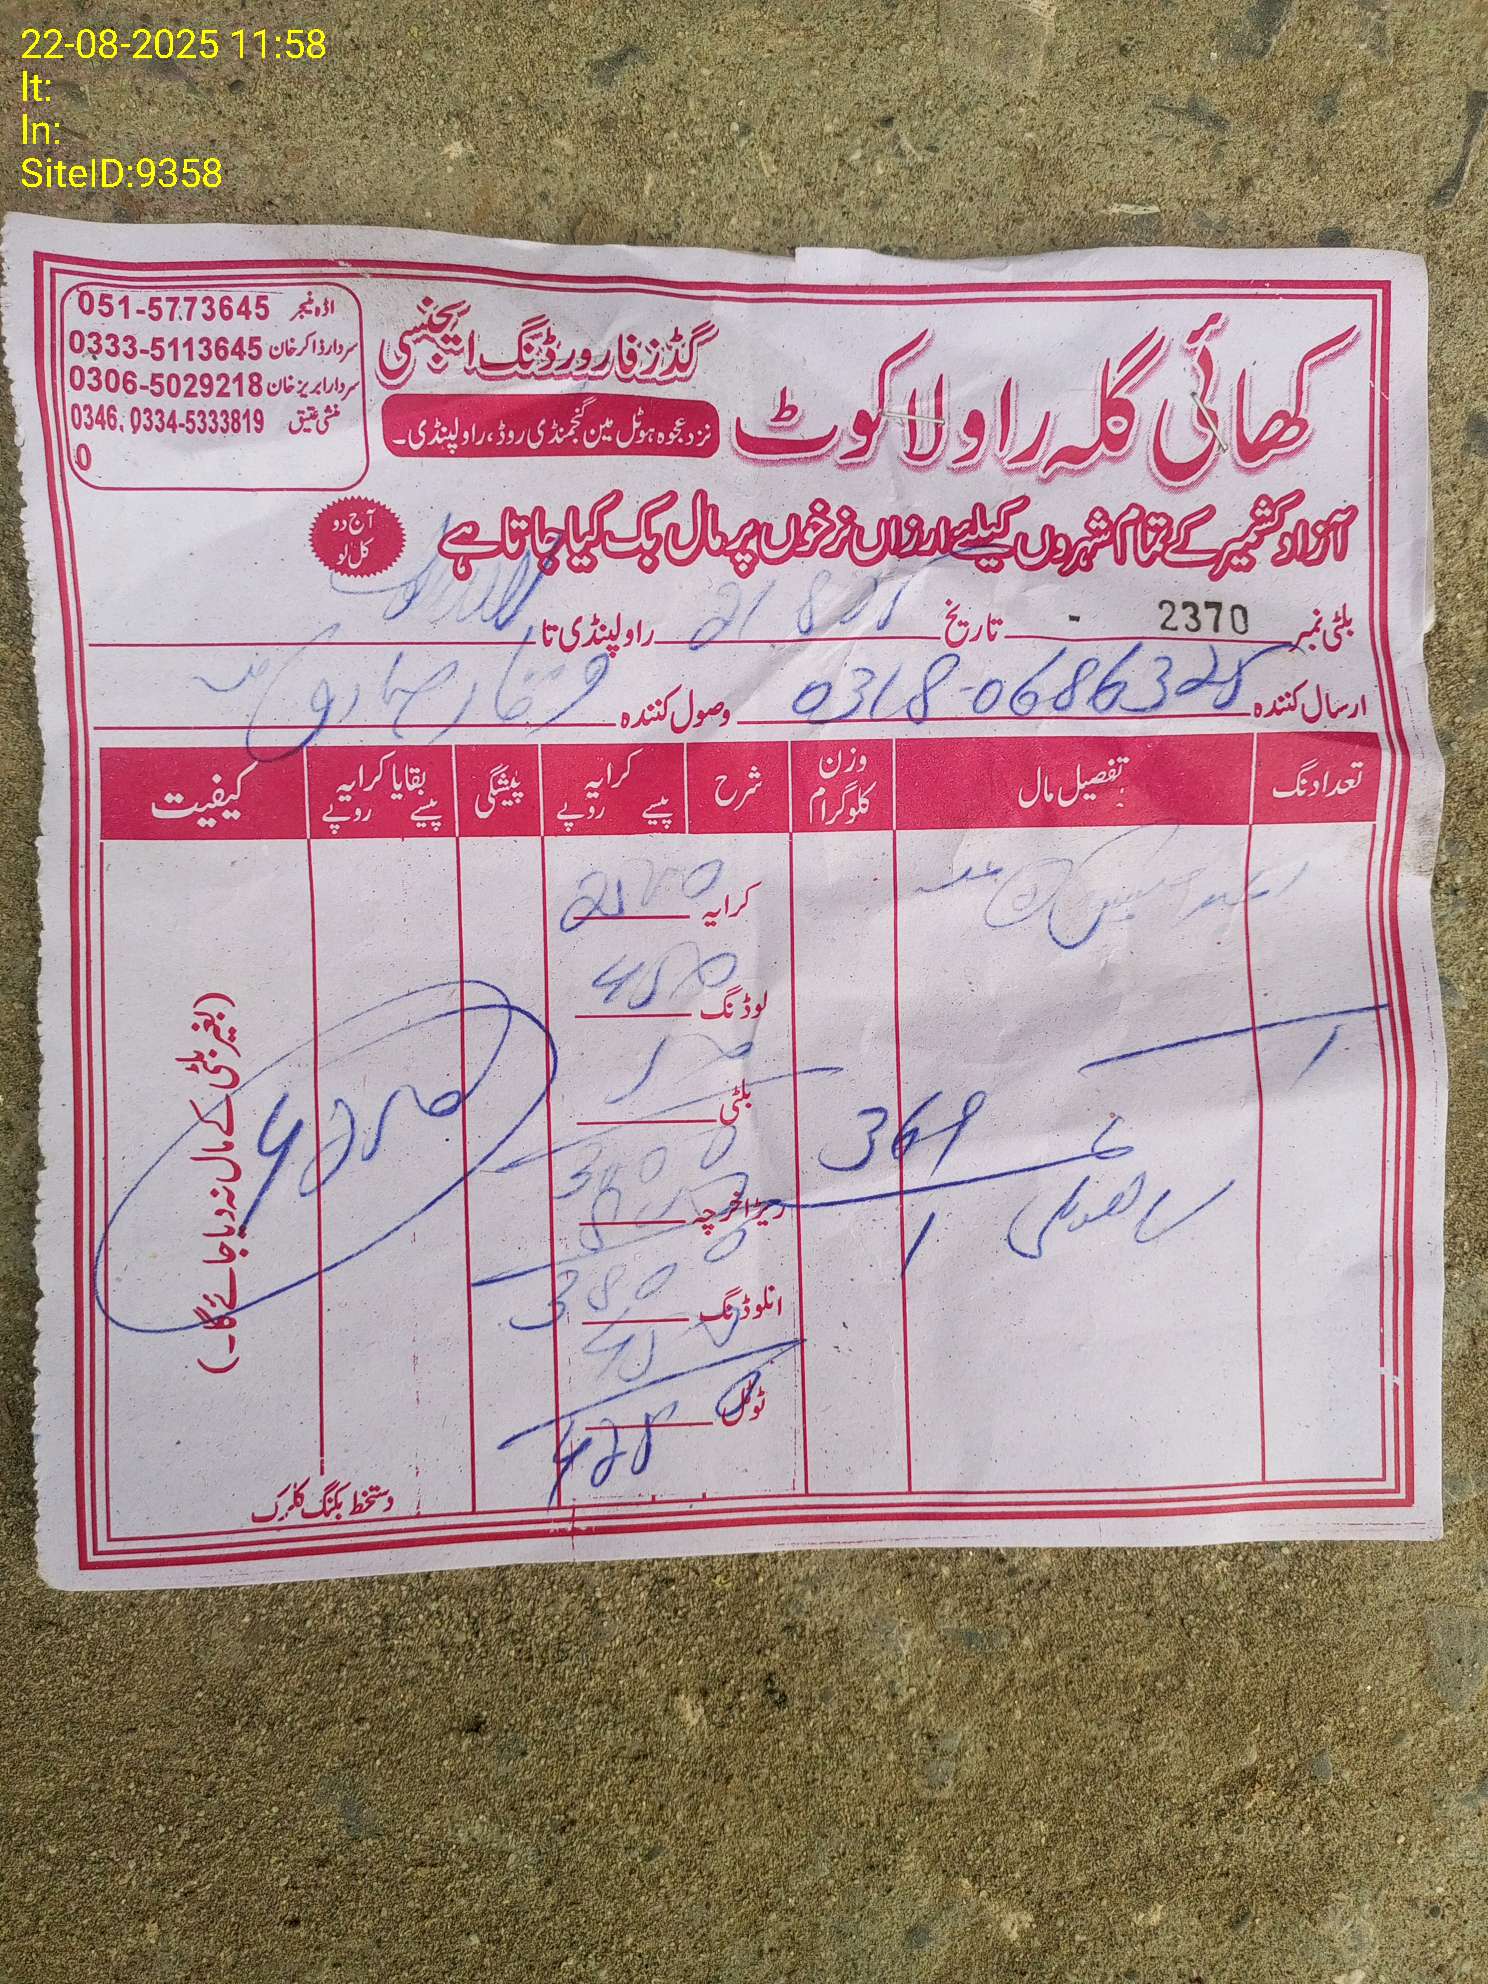 22-08-2025 11:58
lt:
ln:
SiteID:9358
اڈہ منیجر 051-5773645
سردار ذاکر خان 0333-5113645
سردار ابریز خان 0306-5029218
منشی عتیق 0346, 0334-5333819
0
کھائی گلہ راولاکوٹ
گڈز فارورڈنگ ایجنسی
نزد عجوہ ہوٹل مین گنجمنڈی روڈ، راولپنڈی۔
آزاد کشمیر کے تمام شہروں کیلئے ارزاں نرخوں پر مال بک کیا جاتا ہے
آج دو
کل لو
بلٹی نمبر 2370 - تاریخ 21 8 25 راولپنڈی تا
ارسال کنندہ 0318-0686328 وصول کنندہ وقار صادق
تعداد نگ تفصیل مال وزن کلوگرام شرح کرایہ روپے پیسے پیشگی بقایا کرایہ روپے پیسے کیفیت
کرایہ
لوڈنگ 450
بلٹی
1
369
ریڑا خرچہ
1
انلوڈنگ
3800
450
ٹوٹل
4250
4250
(بغیر بلٹی کے مال نہ دیا جائے گا۔)
دستخط بکنگ کلرک